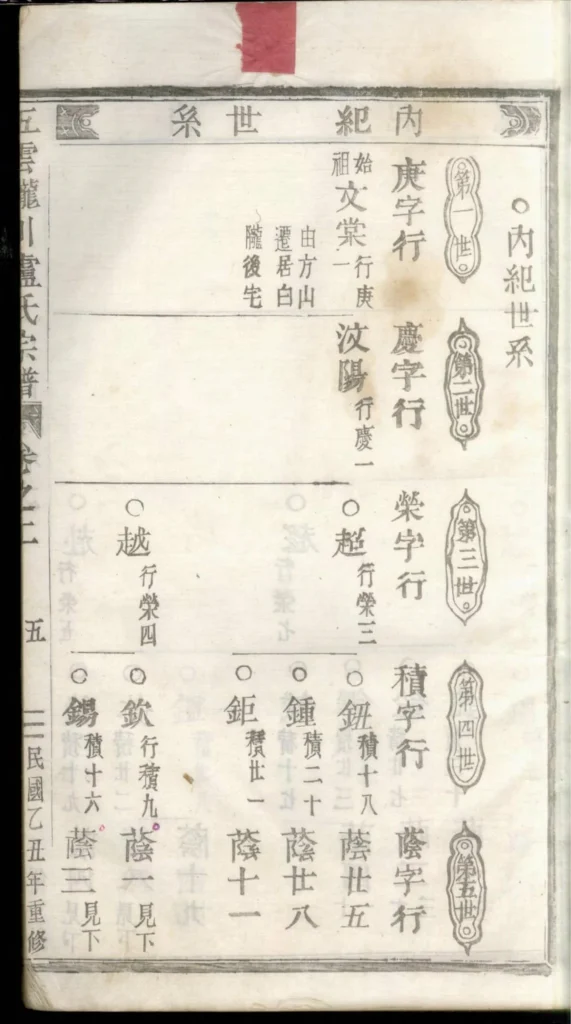 內紀世系
○內紀世系
第一世
庚字行
始祖文棠行庚一
由方山
遷居白
隴後宅
第二世
慶字行
汶陽行慶一
第三世
榮字行
○超行榮三
○越行榮四
第四世
積字行
○鈕積十八
○鍾積二十
○鉅積廿一
○欽行積九
○鍚積十六
第五世
蔭字行
蔭廿五
蔭廿八
蔭十一
蔭一見下
蔭三見下
五雲隴川盧氏宗譜
卷之二
五
民國乙丑年重修